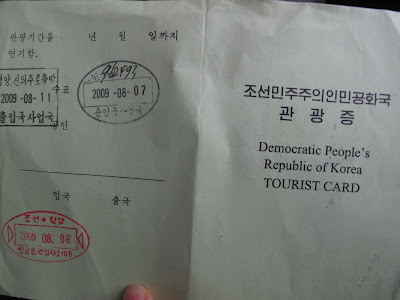 관광기간을 년 월 일까지
연기함.
2009-08-11
출입국사업국
수표
공인
No.
2009-08-07
입국 출국
조선★평양
2009.08.08
조선민주주의인민공화국
관 광 증
Democratic People's
Republic of Korea
TOURIST CARD